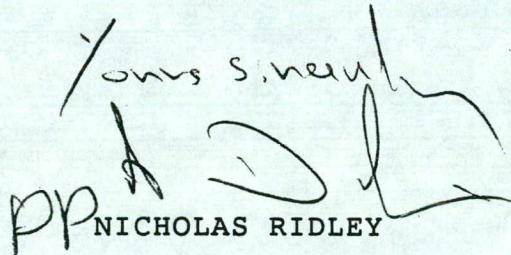 Yours Sincerely
pp NICHOLAS RIDLEY